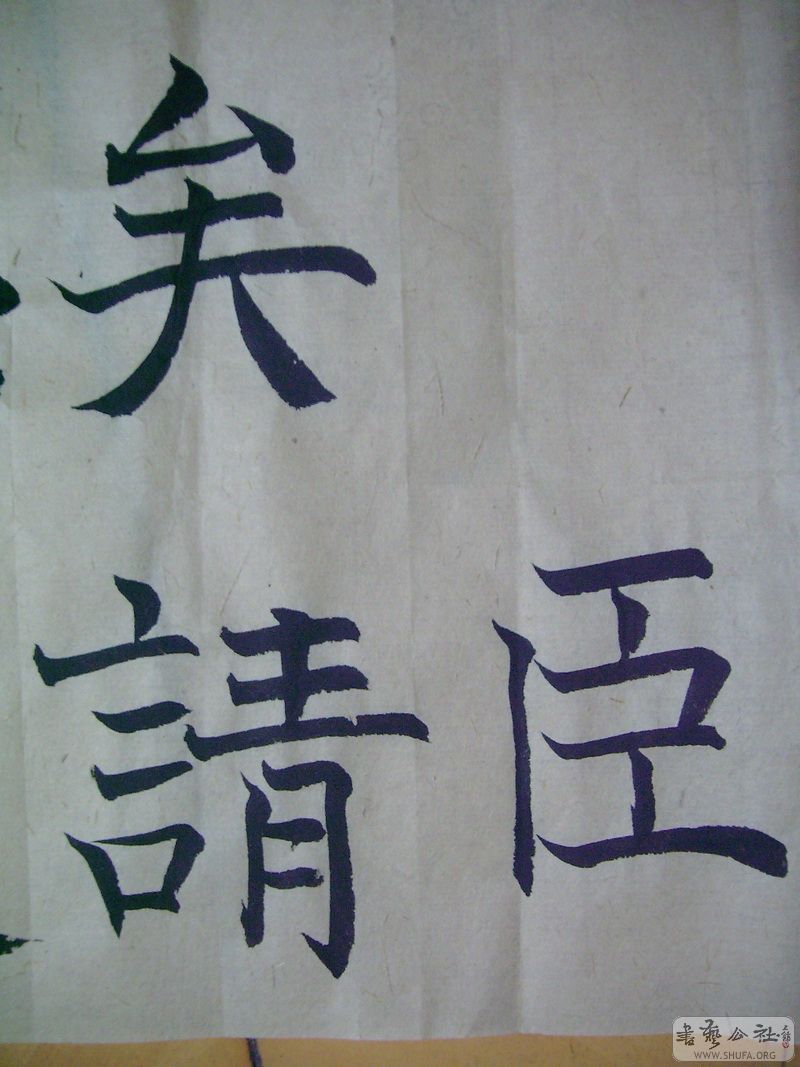 臣
矣請
書藝公社
WWW.SHUFA.ORG